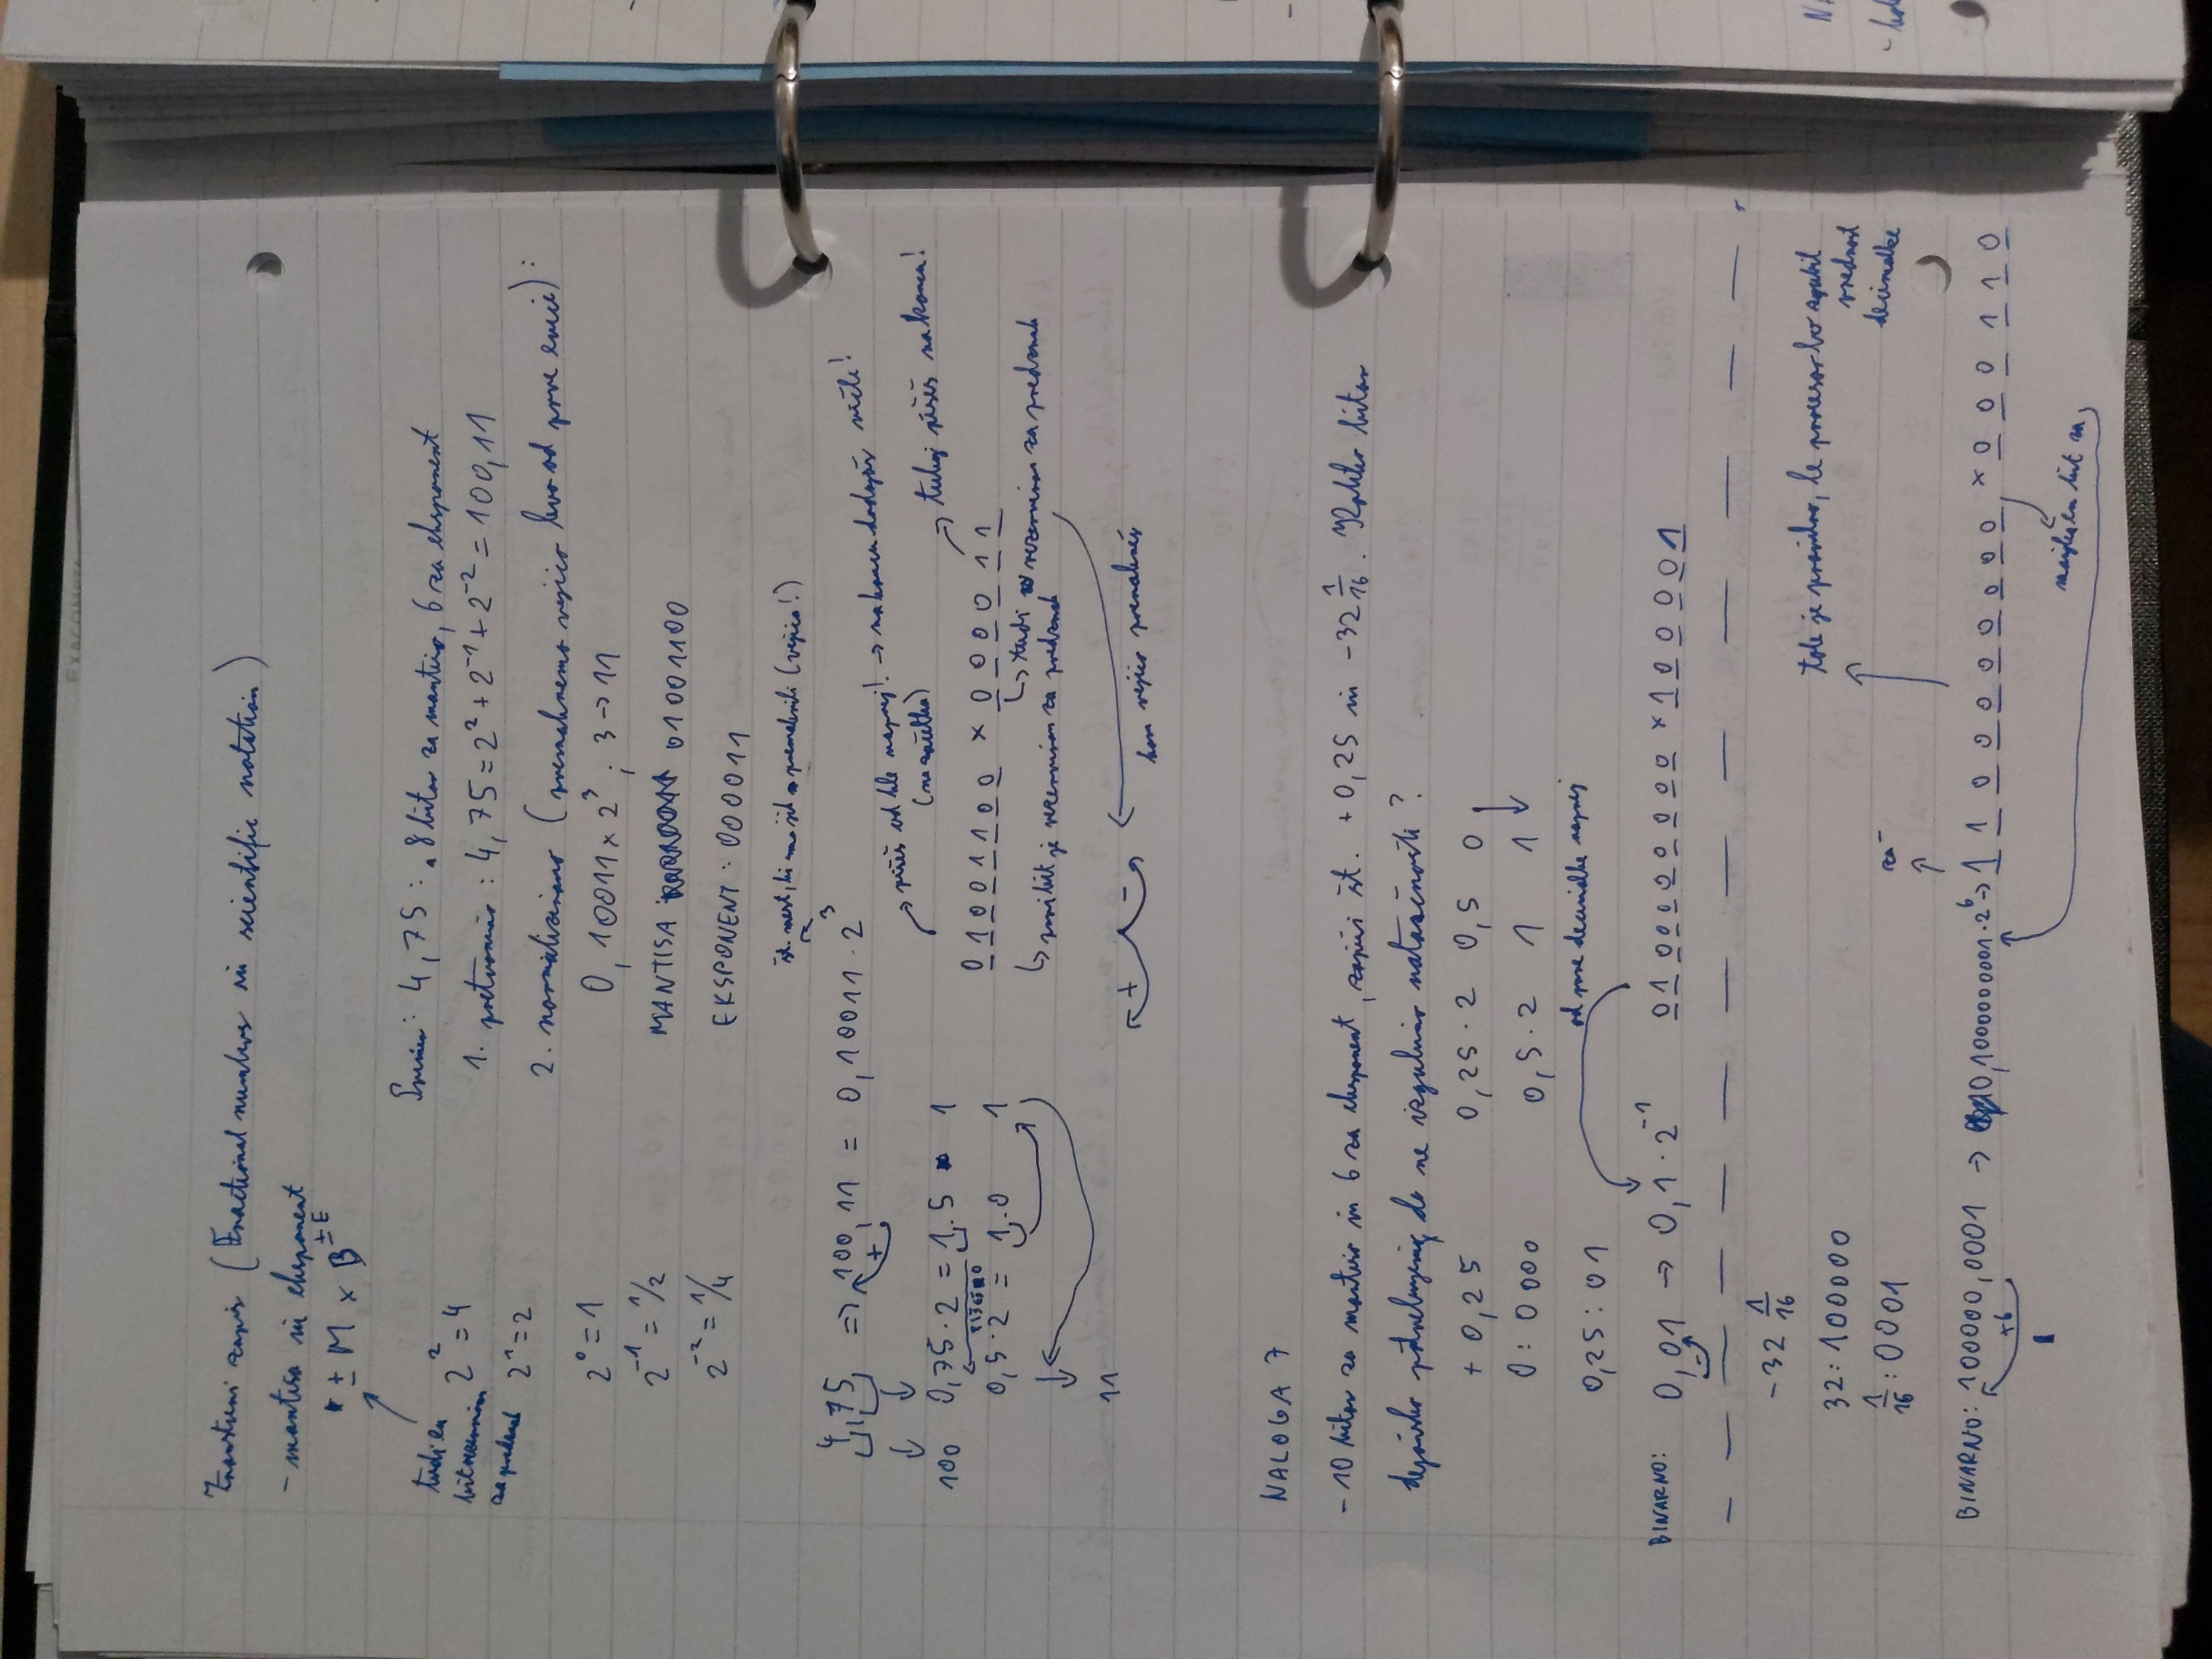 EXACOMPTA
Znanstveni zapis (Fractional numbers in scientific notation)
- mantisa in eksponent
± M × B^±E
tudi en
bit rezerviran
za predznak
2² = 4
2¹ = 2
2⁰ = 1
2⁻¹ = 1/2
2⁻² = 1/4
Primer: 4,75 : 8 bitov za mantiso, 6 za eksponent
1. pretvorimo : 4,75 = 2² + 2⁻¹ + 2⁻² = 100,11
2. normaliziramo (premaknemo vejico levo od prve enice):
0,10011 × 2³ ; 3 → 11
MANTISA 01001100
EKSPONENT : 000011
št. mest, ki smo jih premaknili (vejica!)
4,75 => 100,11 = 0,10011 · 2³
+
100 0,75 · 2 = 1.5 1
PIŠEMO
0,5 · 2 = 1.0 1
11
pišeš od kle naprej! → na koncu dodajaš ničle!
(na začetku)
tukej pišeš na koncu!
01001100 × 000011
prvi bit je rezerviran za predznak
tudi rezerviran za predznak
+ -
kam vejico premakneš
NALOGA 7
- 10 bitov za mantiso in 6 za eksponent, zapiši št. + 0,25 in - 32 1/16. Koliko bitov
dejansko potrebujemo, da ne izgubimo natančnosti?
+ 0,25 0,25 · 2 0,5 0
0 : 0000 0,5 · 2 1 1
od prve decimalke naprej
0,25 : 01
BINARNO: 0,01 → 0,1 · 2⁻¹ 0100000000 × 100001
-
- 32 1/16
32 : 100000
1/16 : 0001
tole je pravilno, le procesor bo zgubil
vrednost
decimalke
za -
BINARNO: 100000,0001 → 0,1000000001 · 2⁶ → 1100000000, × 000110
+6
manjka en bit za